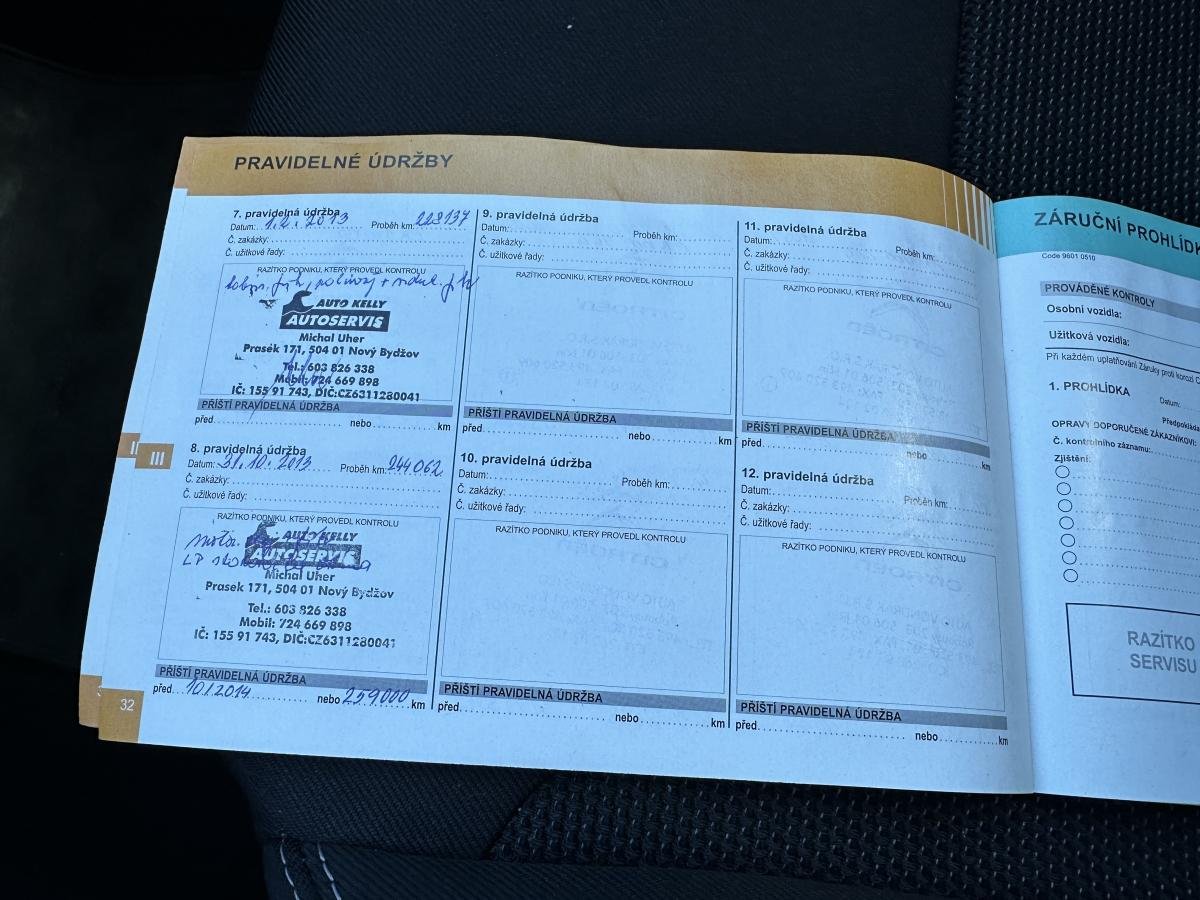 PRAVIDELNÉ ÚDRŽBY
7. pravidelná údržba
Datum: 1.2. 2013 Proběh km: 228137
Č. zakázky:
Č. užitkové řady:
RAZÍTKO PODNIKU, KTERÝ PROVEDL KONTROLU
AUTO KELLY
AUTOSERVIS
Michal Uher
Prasek 171, 504 01 Nový Bydžov
Tel.: 603 826 338
Mobil: 724 669 898
IČ: 155 91 743, DIČ:CZ6311280041
PŘÍŠTÍ PRAVIDELNÁ ÚDRŽBA
před nebo km
III
8. pravidelná údržba
Datum: 31.10.2013 Proběh km: 244062
Č. zakázky:
Č. užitkové řady:
RAZÍTKO PODNIKU, KTERÝ PROVEDL KONTROLU
AUTO KELLY
AUTOSERVIS
Michal Uher
Prasek 171, 504 01 Nový Bydžov
Tel.: 603 826 338
Mobil: 724 669 898
IČ: 155 91 743, DIČ:CZ6311280041
PŘÍŠTÍ PRAVIDELNÁ ÚDRŽBA
před 10.1.2014 nebo 259000 km
32
9. pravidelná údržba
Datum: Proběh km:
Č. zakázky:
Č. užitkové řady:
RAZÍTKO PODNIKU, KTERÝ PROVEDL KONTROLU
PŘÍŠTÍ PRAVIDELNÁ ÚDRŽBA
před nebo km
10. pravidelná údržba
Datum: Proběh km:
Č. zakázky:
Č. užitkové řady:
RAZÍTKO PODNIKU, KTERÝ PROVEDL KONTROLU
PŘÍŠTÍ PRAVIDELNÁ ÚDRŽBA
před nebo km
11. pravidelná údržba
Datum: Proběh km:
Č. zakázky:
Č. užitkové řady:
RAZÍTKO PODNIKU, KTERÝ PROVEDL KONTROLU
PŘÍŠTÍ PRAVIDELNÁ ÚDRŽBA
před nebo km
12. pravidelná údržba
Datum: Proběh km:
Č. zakázky:
Č. užitkové řady:
RAZÍTKO PODNIKU, KTERÝ PROVEDL KONTROLU
PŘÍŠTÍ PRAVIDELNÁ ÚDRŽBA
před nebo km
ZÁRUČNÍ PROHLÍDK
Code 9601 0510
PROVÁDĚNÉ KONTROLY
Osobní vozidla:
Užitková vozidla:
Při každém uplatňování Záruky proti korozi
1. PROHLÍDKA
Datum:
Předpokláda
OPRAVY DOPORUČENÉ ZÁKAZNÍKOVI:
Č. kontrolního záznamu:
Zjištění:
RAZÍTKO
SERVISU